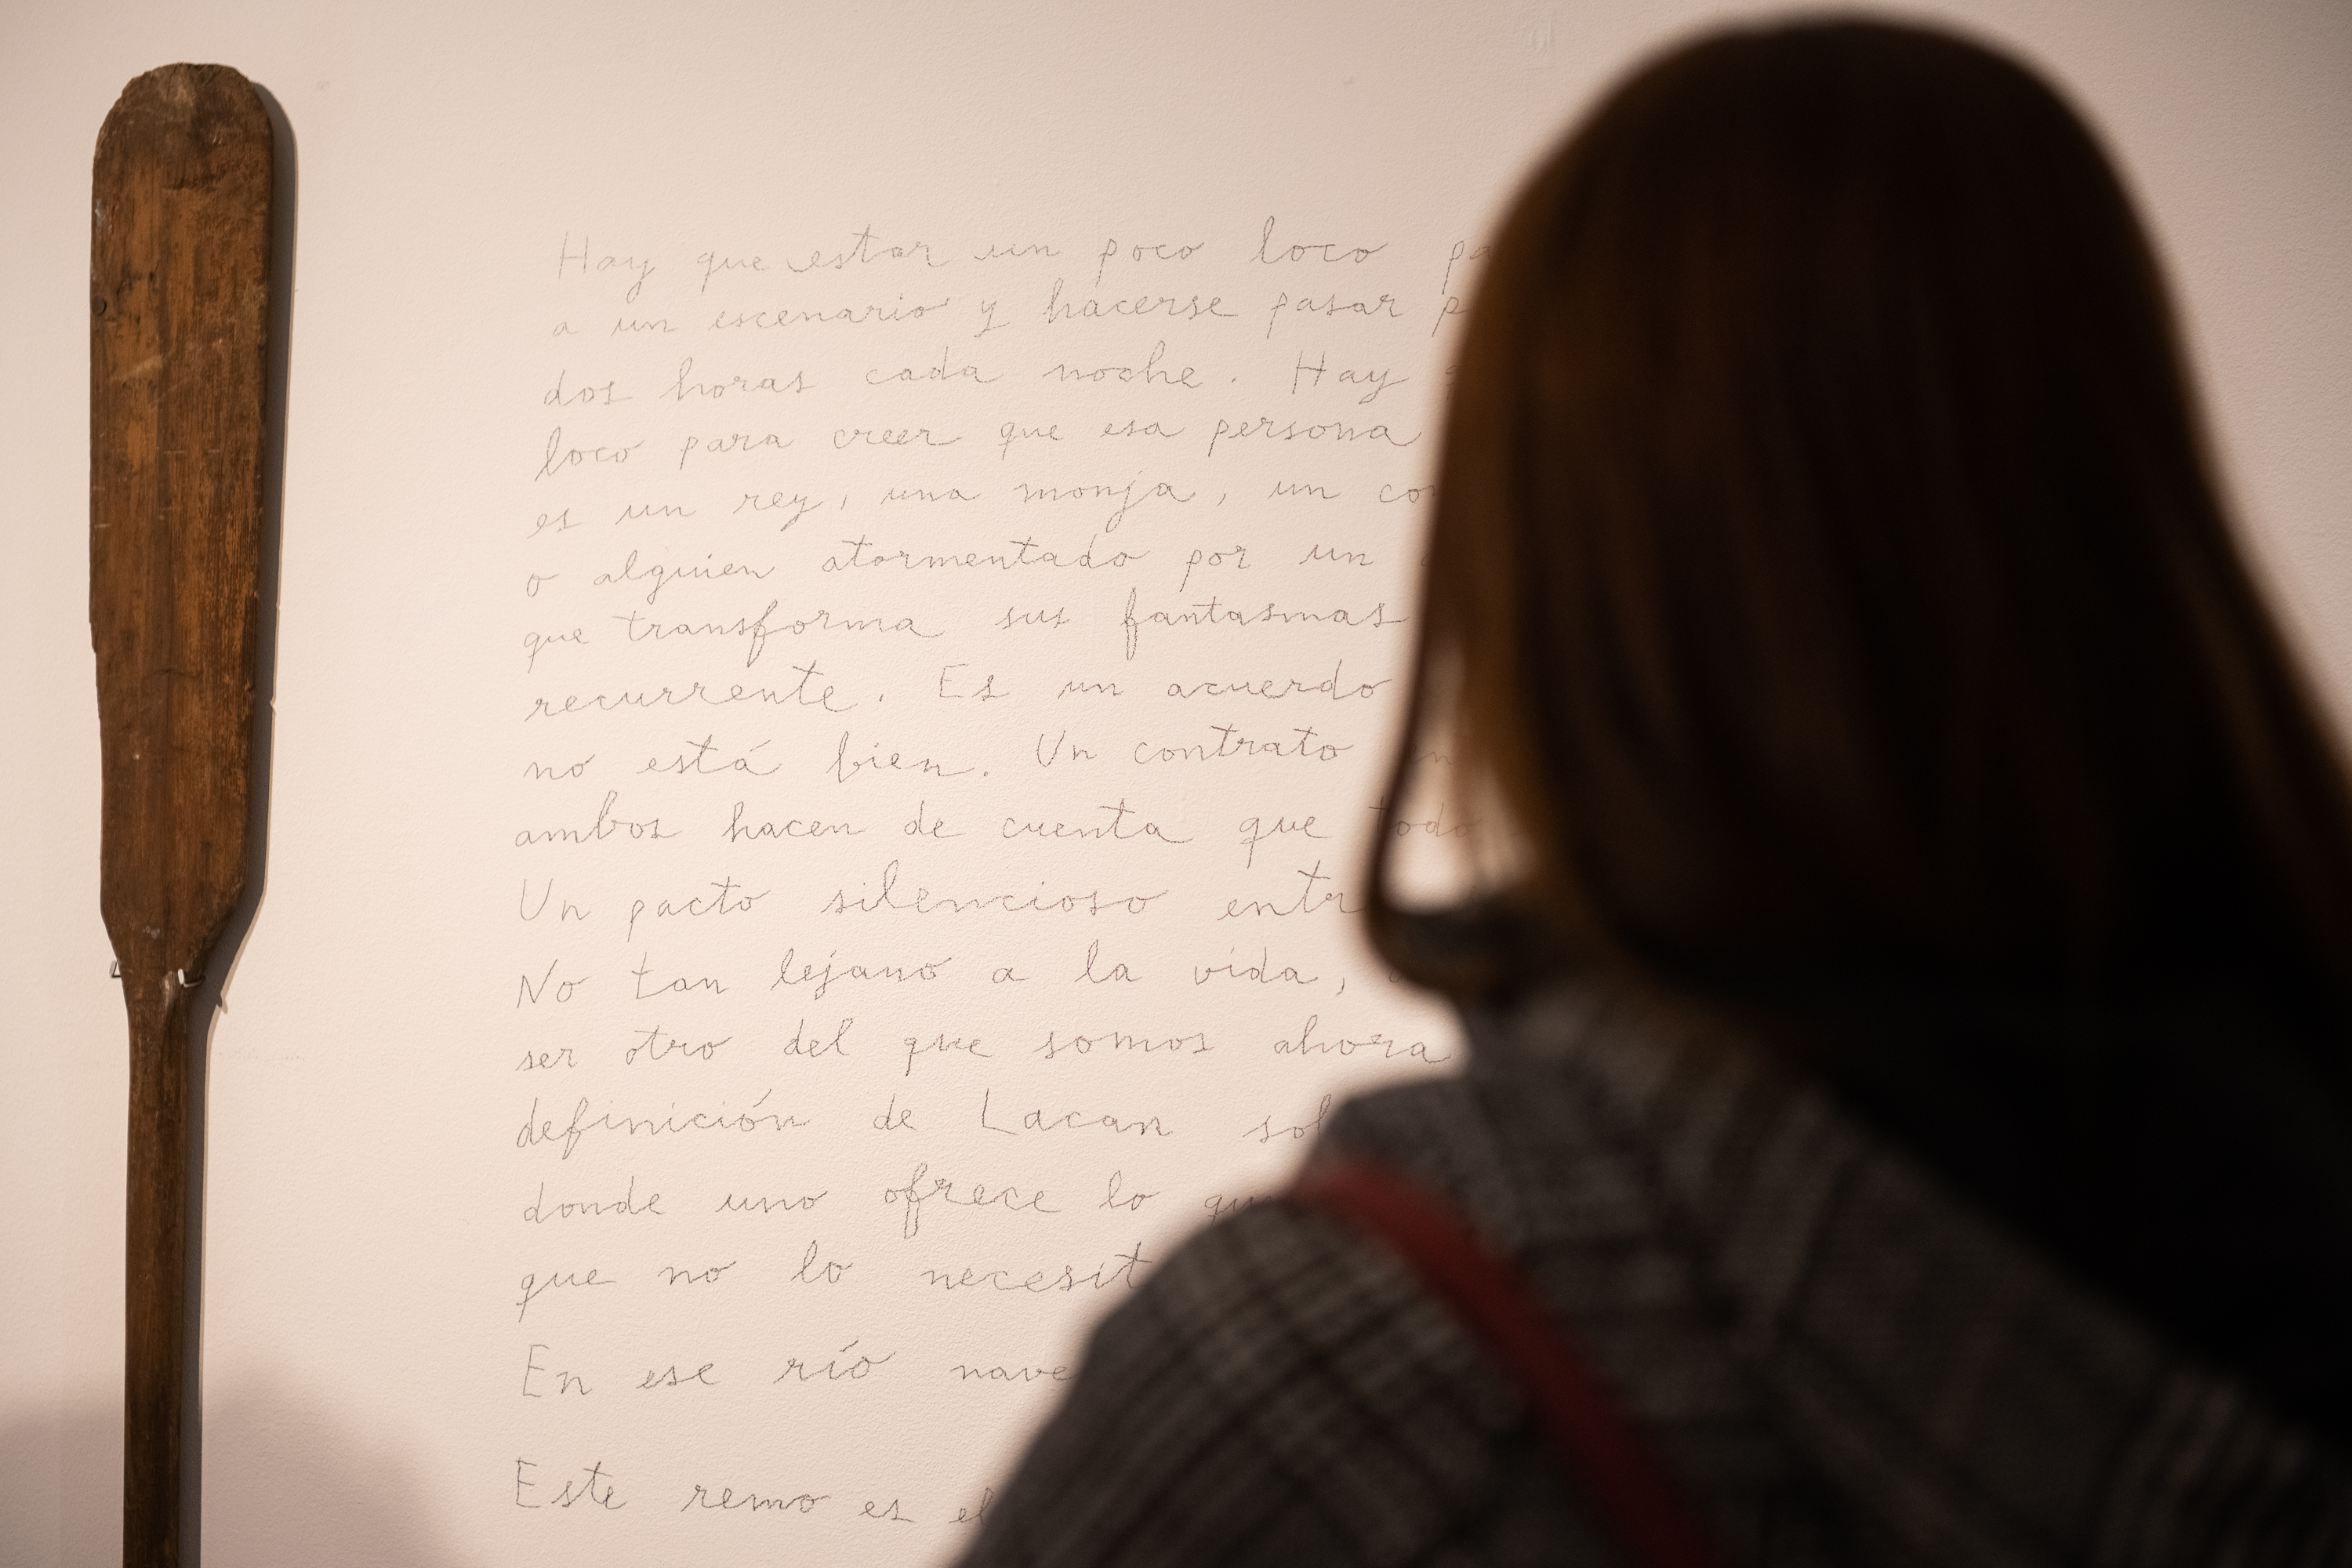 Hay que estar un poco loco
a un escenario y hacerse pasar
dos horas cada noche. Hay
loco para creer que esa persona
es un rey, una monja, un
o alguien atormentado por un
que transforma sus fantasmas
recurrente. Es un acuerdo
no está bien. Un contrato
ambos hacen de cuenta que todo
Un pacto silencioso
No tan lejano a la vida,
ser otro del que somos ahora
definición de Lacan
donde uno ofrece lo
que no lo
En ese río
Este remo es el